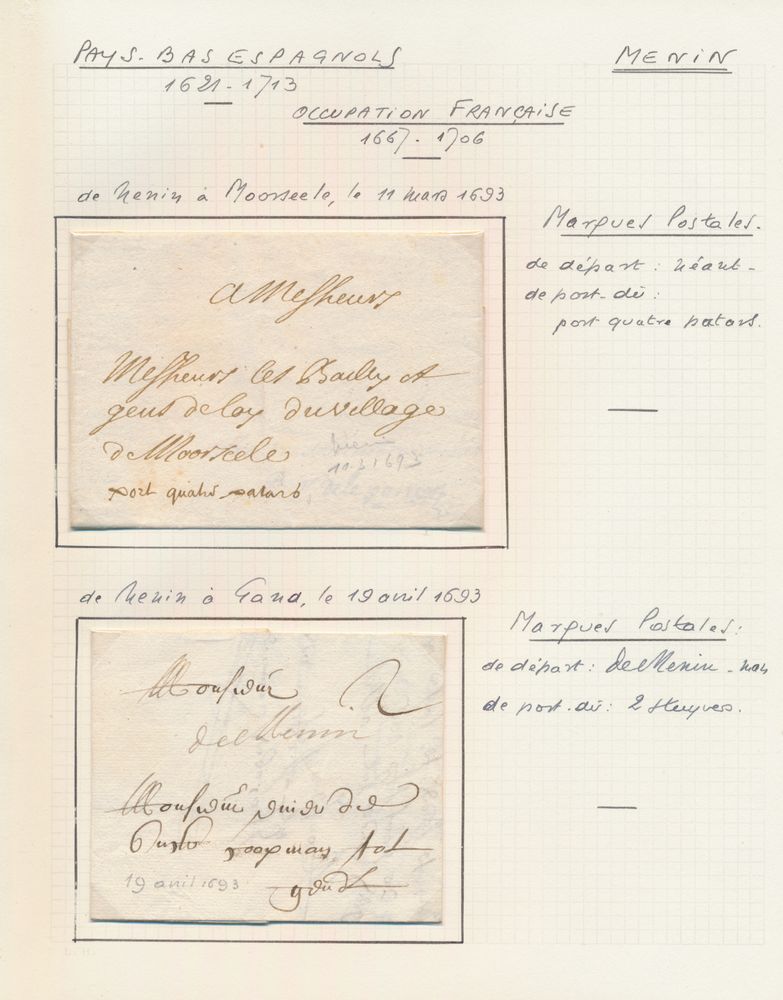 PAYS-BAS ESPAGNOLS
MENIN
1621-1713
OCCUPATION FRANÇAISE
1667-1706
de Menin à Moorseele, le 11 mars 1693
Marques Postales.
de départ : néant-
de port-dû :
port quatre patars.
A Messieurs
Messieurs les Bailly et
gens de loy du village
de Moorseele
Menin
11.3.1693
port quatre patars
de Menin à Gand, le 19 avril 1693
Marques Postales:
de départ: de Menin -
de port-dû: 2 stuyvers.
Monsieur 2
de Menin
Monsieur de
coopman tot
19 avril 1693
gendt